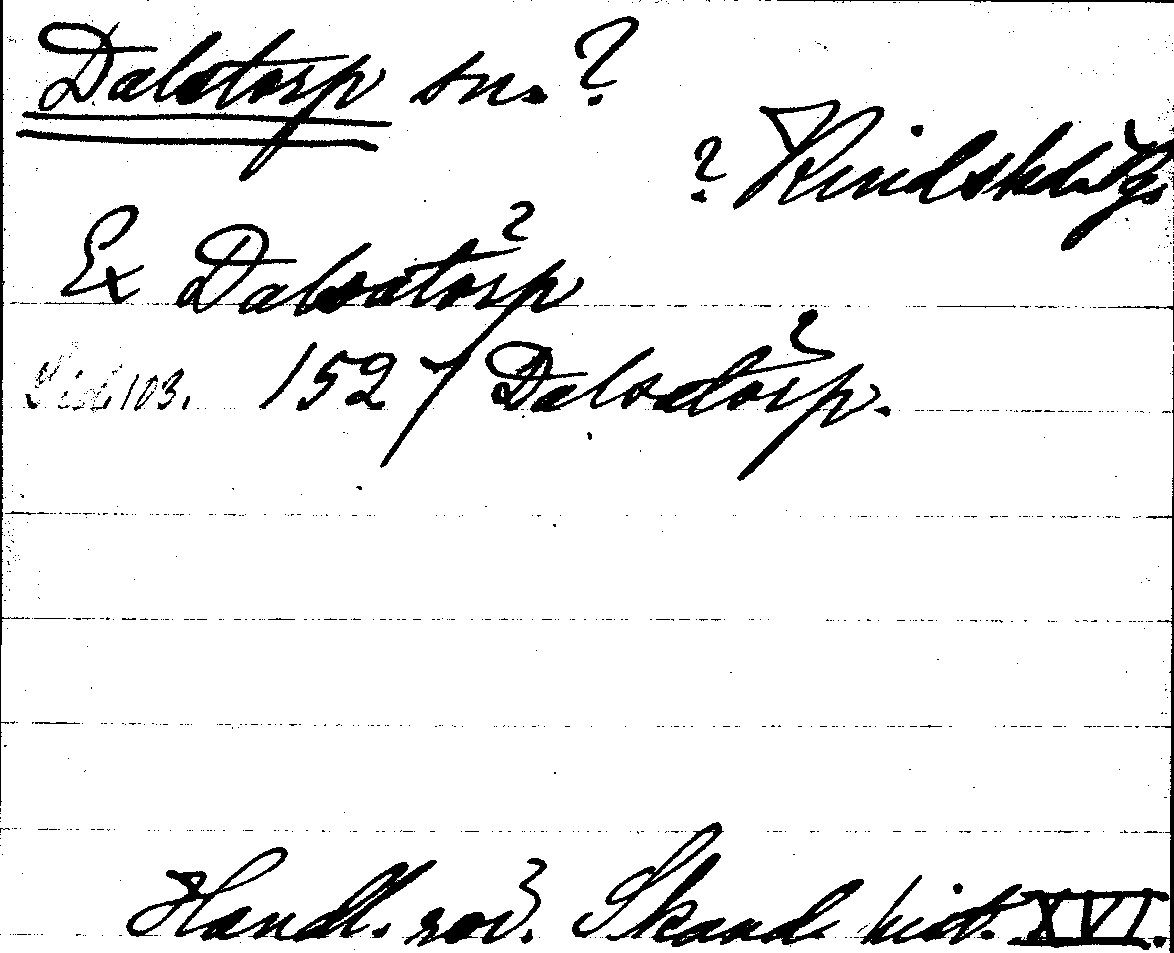 Dalstorp sn. ?
? Kinds hd. Vg.
Ex Dalsstorp
Sid. 103. 1527 Dalsstorp.
Handl. rör. Skand. hist. XVI.